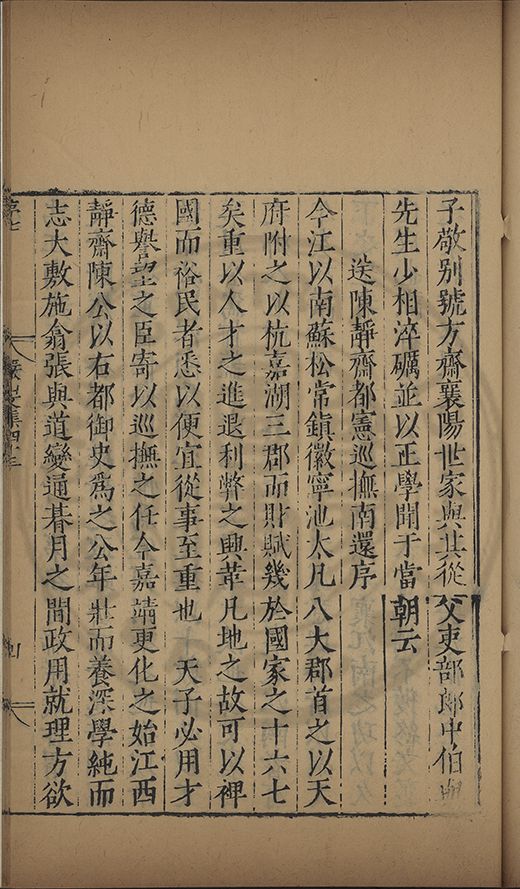 子敬別號方齋襄陽世家與其從父吏部郎中伯
先生少相淬礪並以正學聞于當朝云
送陳靜齋都憲巡撫南還序
今江以南蘇松常鎮徽寧池太凡八大郡首之以天
府附之以杭嘉湖三郡而財賦幾於國家之十六七
矣重以人才之進退利弊之興革凡地之故可以裨
國而裕民者悉以便宜從事至重也 天子必用才
德譽望之臣寄以巡撫之任今嘉靖更化之始江西
靜齋陳公以右都御史爲之公年壯而養深學純而
志大敷施翕張與道變通朞月之間政用就理方欲